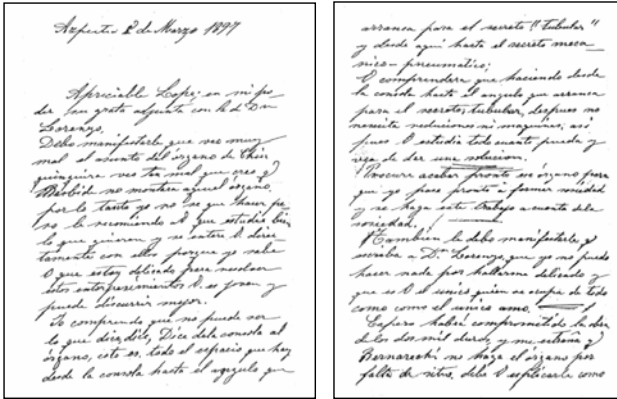 Azpeitia 8 de Marzo 1897
Apreciable Lope: en mi po
der su grata adjunta con la de Dn
Lorenzo.
Debo manifestarle que veo muy
mal el asunto del órgano de Chin
quinquira veo tan mal que creo q
no montara aquel órgano,
por lo tanto yo no se que hacer pe
ro le recomiendo á que estudie bien
lo que quieren y se entere V. direc
tamente con ellos porque ya sabe
V que estoy delicado para resolver
estos V. es joven y
puede discurrir mejor.
Yo comprendo que no puede ser
lo que dice, Dice de la consola al
órgano, esto es, todo el espacio que hay
desde la consola hasta el angulo que
arranca para el secreto "tubular"
y desde aqui hasta el secreto meca
nico-pneumatico;
V comprendera que haciendo desde
la consola hasta el angulo que arranca
para el secreto, tubular, despues no
necesita reducciones ni maquinas; asi
pues V estudie todo cuanto pueda y
vea de dar una solucion.
Procure acabar pronto ese órgano para
que yo pase pronto á formar sociedad
y se haga este trabajo a cuenta de la
sociedad.
Tambien le debo manifestarle q
escriba a Dn Lorenzo, que yo no puedo
hacer nada por hallarme delicado y
que es V el unico quien se ocupa de todo
como como el unico amo.
Espero haber comprometido la obra
de los dos mil duros, y me estraña q
Bernareggi no haga el órgano por
falta de sitio, debe V esplicarle como